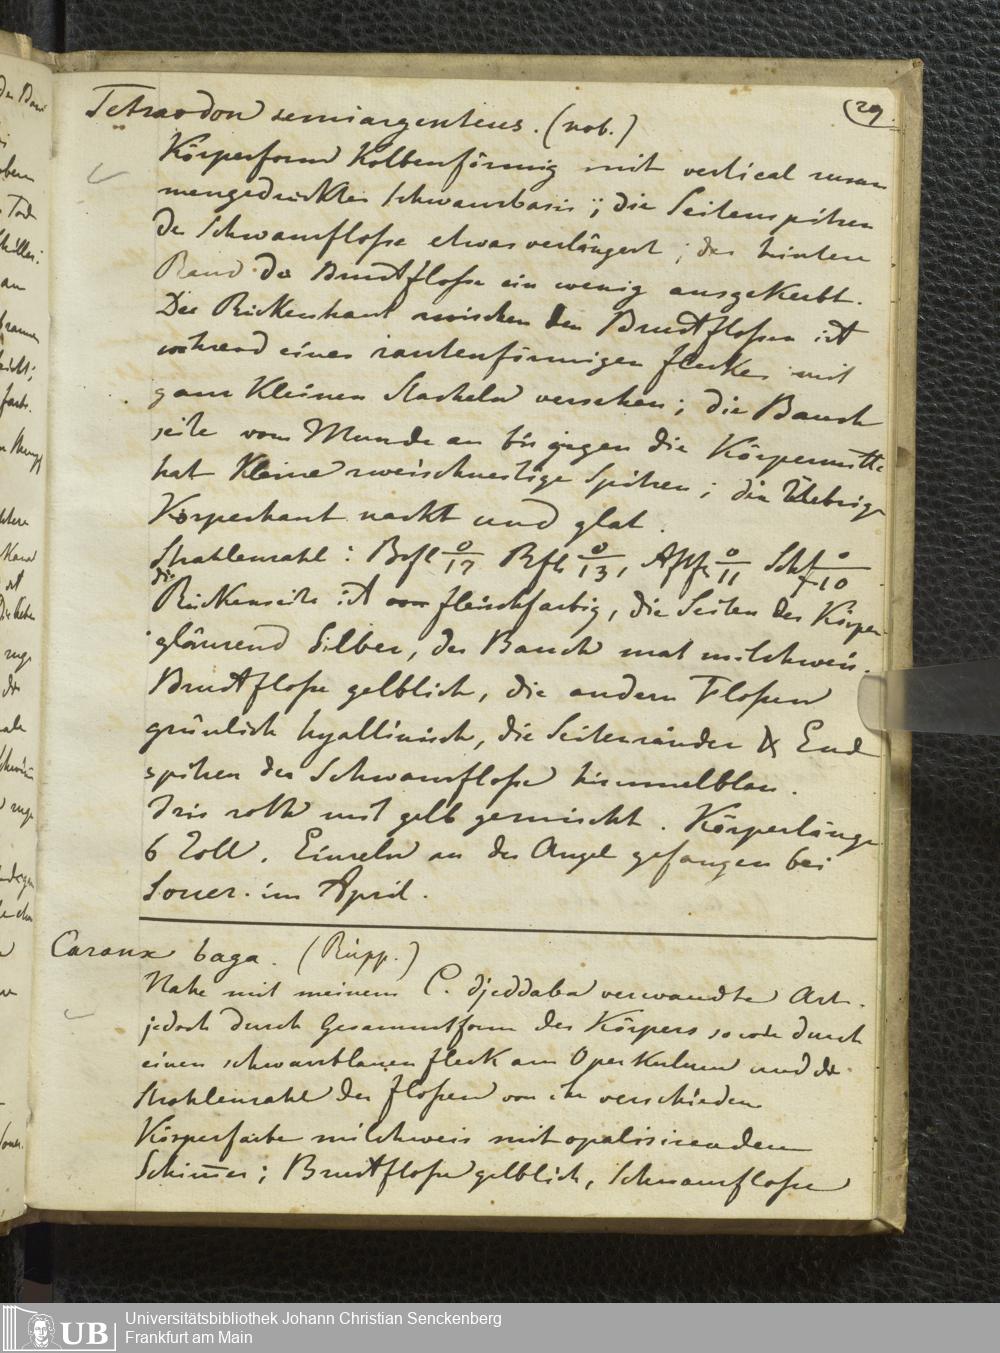 29
Tetraodon semiargenteus. (nob.)
Körperform Kolbenförmig mit vertical zusam
mengedrückter Schwanzbasis; die Seitenspitzen
der Schwanzflosse etwas verlängert; der hintere
Rand der Brustflosse ein wenig ausgekerbt.
Die Rückenhaut zwischen den Brustflossen ist
während eines rautenförmigen fleckes mit
ganz Kleinen Stacheln versehen; die Bauch
seite vom Munde an bis gegen die Körpermitte
hat Kleine zweischneidige Spitzen; die Uebrige
Körperhaut nackt und glat.
Strahlenzahl: Brfl 0/17 Rfl 0/13, Afl 0/11 Schf 0/10
die
Rückenseite ist fleischfarbig, die Seiten des Körpers
glänzend Silber, der Bauch mat milchweis.
Brustflosse gelblich, die andern Flossen
grünlich hyallinisch, die Seitenränder & End
spitzen der Schwanzflosse himmelblau.
Iris roth mit gelb gemischt. Körperlänge
6 Zoll. Einzeln an der Angel gefangen bei
Souer. im April.
Caranx baga. (Rüpp.)
Nahe mit meinem C. djeddaba verwandte Art.
jedoch durch Gesammtform des Körpers sowie durch
einen schwarzblauen fleck am Operkulum und die
Strahlenzahl der flossen von ihr verschieden
Körperfarbe milchweis mit opalisirendem
Schim̄er; Brustflosse gelblich, Schwanzflosse
UB
Universitätsbibliothek Johann Christian Senckenberg
Frankfurt am Main